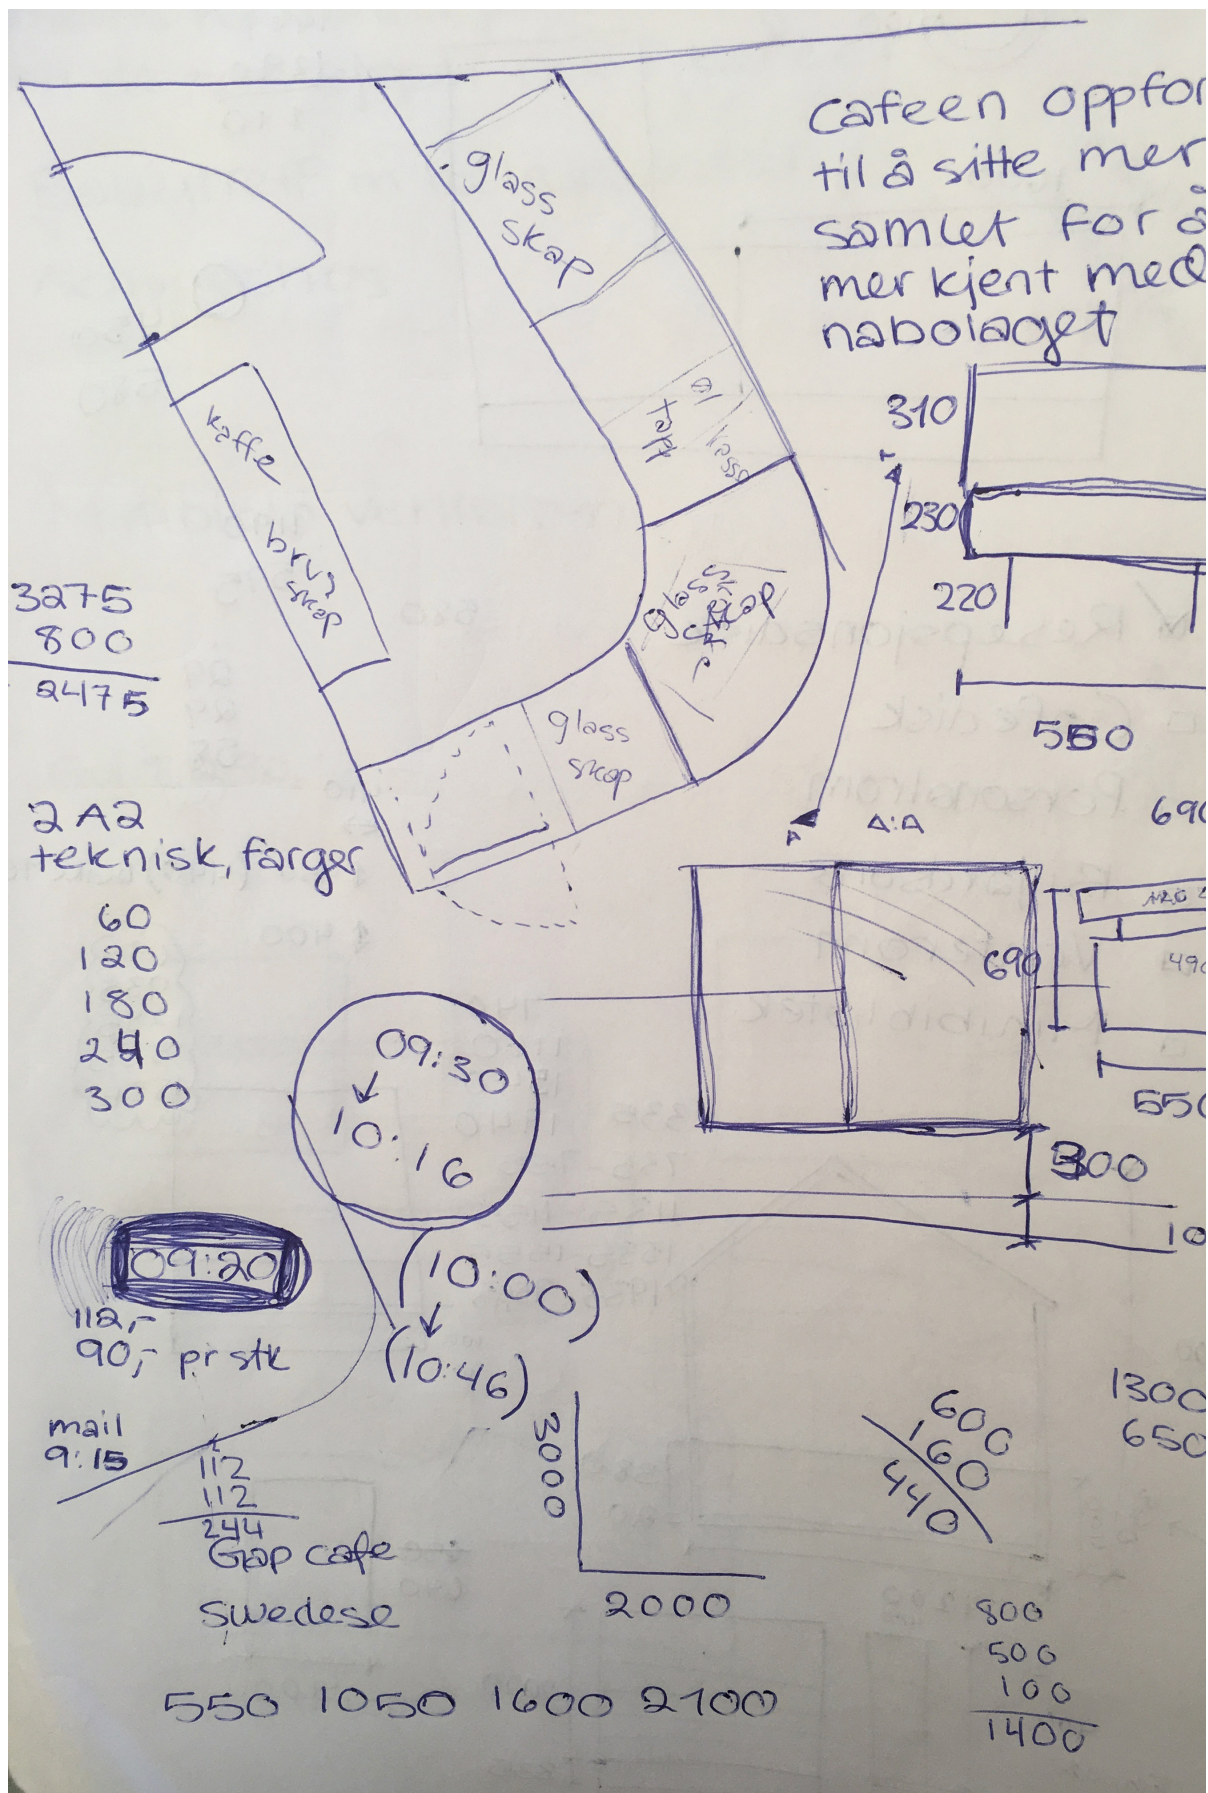 cafeen oppfor
til å sitte mer
samlet for å
mer kjent med
nabolaget
glass
skap
øl
tapt
kasse
kaffe
brus
skap
glass
skap
glass
skap
310
230
220
550
3275
800
2475
2 A2
teknisk, farger
60
120
180
240
300
A
A:A
690
690
490
550
300
10
09:30
10:16
09:20
(10:00)
(10:46)
112,-
90,- pr stk
mail
9:15
112
112
244
Gap cafe
swedese
3000
2000
600
160
440
1300
650
800
500
100
1400
550 1050 1600 2100